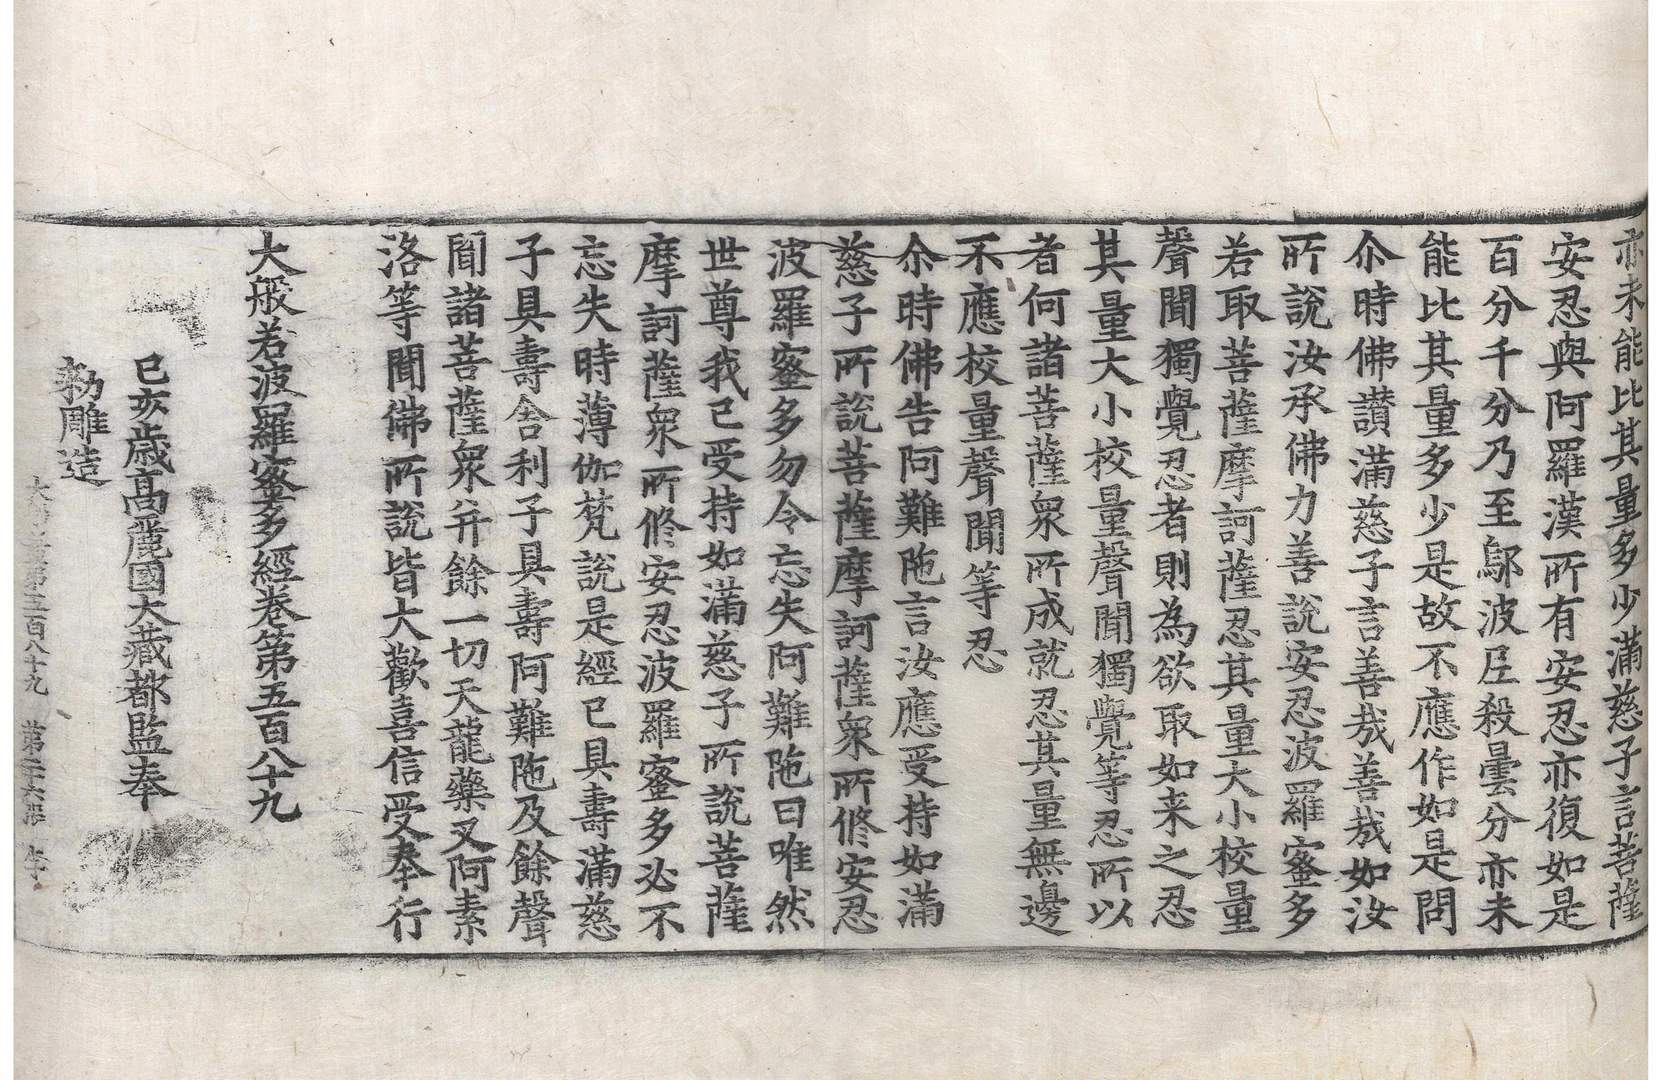 亦未能比其量多少滿慈子言菩薩
安忍與阿羅漢所有安忍亦復如是
百分千分乃至鄔波尼殺曇分亦未
能比其量多少是故不應作如是問
尒時佛讃滿慈子言善㢤善㢤如汝
所說汝承佛力善說安忍波羅蜜多
若取菩薩摩訶薩忍其量大小校量
聲聞獨覺忍者則為欲取如来之忍
其量大小校量聲聞獨覺等忍所以
者何諸菩薩衆所成就忍其量無邊
不應校量聲聞等忍
尒時佛告阿難陁言汝應受持如滿
慈子所說菩薩摩訶薩衆所修安忍
波羅蜜多勿令忘失阿難陁曰唯然
世尊我已受持如滿慈子所說菩薩
摩訶薩衆所修安忍波羅蜜多必不
忘失時薄伽梵說是經已具壽滿慈
子具壽舍利子具壽阿難陁及餘聲
聞諸菩薩衆并餘一切天龍藥叉阿素
洛等聞佛所說皆大歡喜信受奉行
大般若波羅蜜多經卷第五百八十九
己亥歲高麗國大藏都監奉
勅雕造
第五百八十九 第二十六張